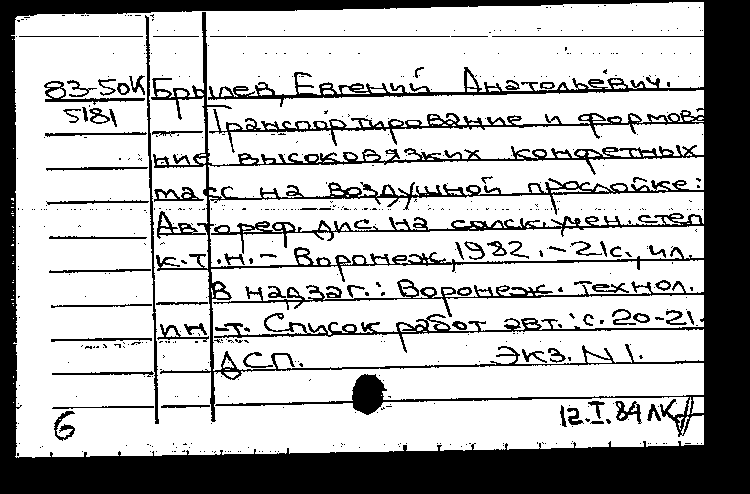 83-50К Брылев, Евгений Анатольевич.
5181 Транспортирование и формова
ние высоковязких конфетных
масс на воздушной прослойке:
Автореф. дис. на соиск. учен. степ
к.т.н. - Воронеж, 1982. - 21с., ил.
В надзаг.: Воронеж. технол.
ин-т. Список работ авт.: с. 20-21.
ДСП. Экз. N 1.
6 12.I.84 ЛК